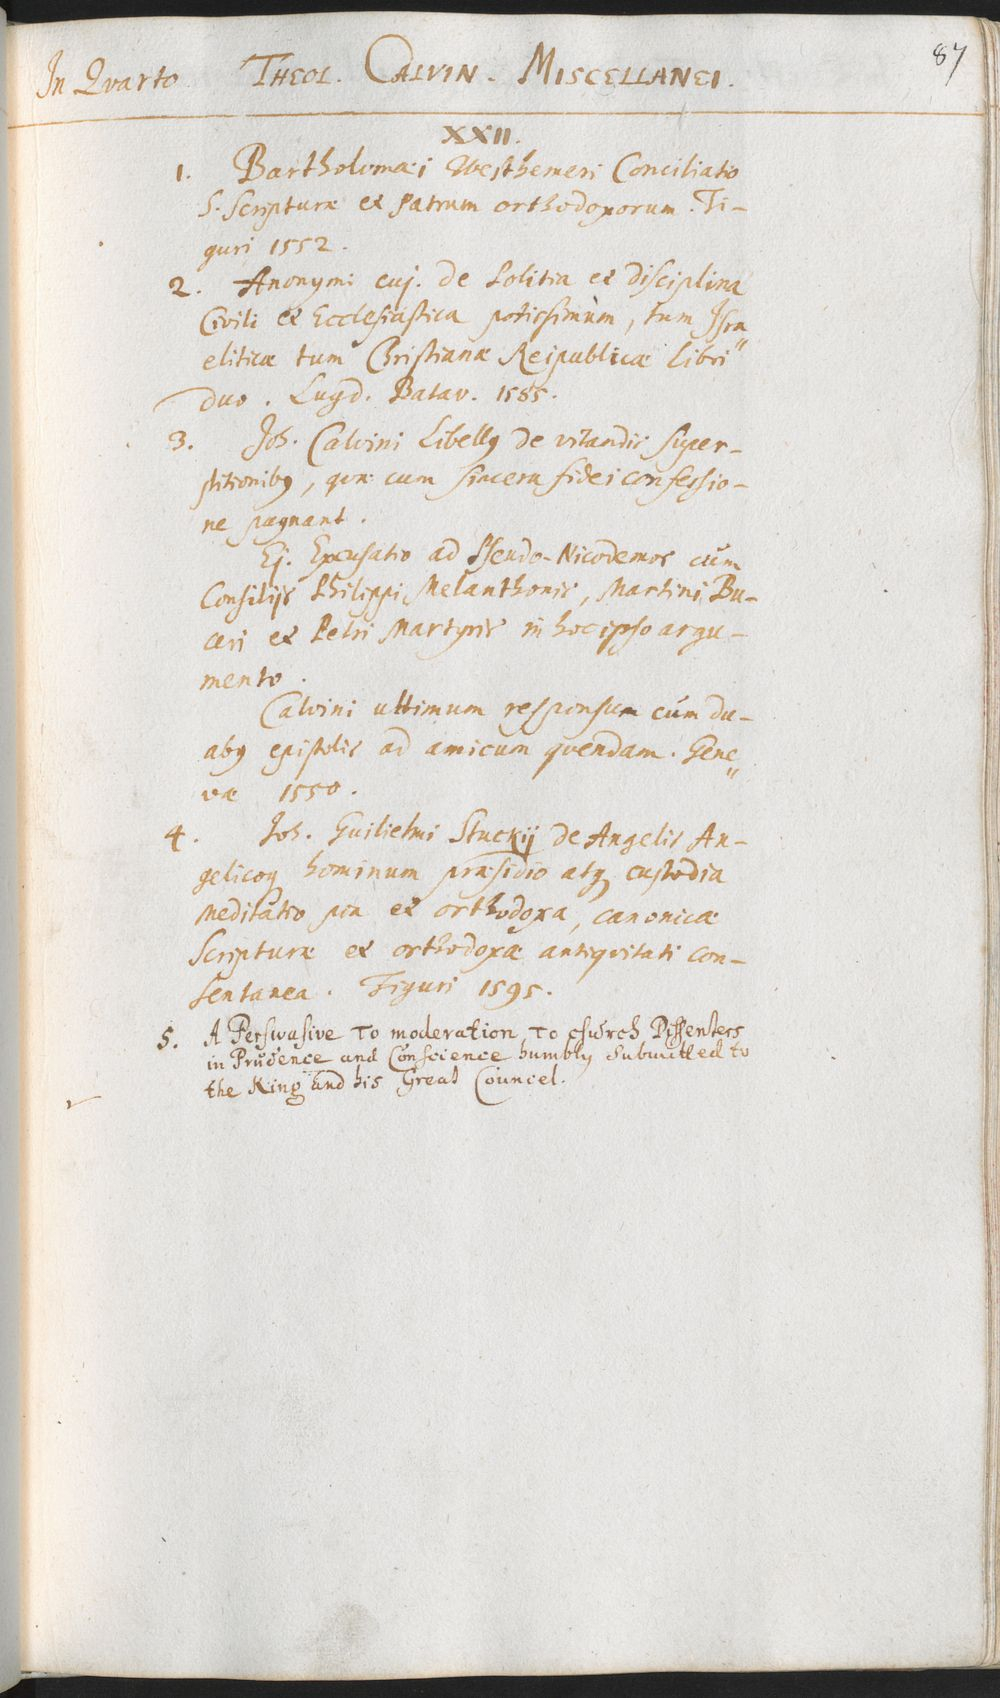 87
In Qvarto THEOL. CALVIN. MISCELLANEI.
XXII.
1. Bartholomæi Westhemeri Conciliatio
S. Scripturæ et Patrum orthodoxorum. Ti-
guri 1552.
2. Anonymi cuj. de Politia et disciplina
Civili et Ecclesiastica potissimùm, tum Isra
eliticæ tum Christianæ Reipublicæ Libri
duo. Lugd. Batav. 1585.
3. Joh. Calvini Libellq de vitandis super-
stitionibq, qvæ cum sincera fidei confessio-
ne pugnant.
Ej. Excusatio ad Pseudo-Nicodemos cum
Consilijs Philippi Melanthonis, Martini Bu-
ceri et Petri Martyris in hoc ipso argu-
mento.
Calvini ultimum responsum cum du-
abq epistolis ad amicum qvendam. Gene
væ 1550.
4. Joh. Guilielmi Stuckij de Angelis An-
gelicoq hominum præsidio atq custodia
meditatio pia et orthodoxa, canonicæ
Scripturæ et orthodoxæ antiqvitati con-
sentanea. Tiguri 1595.
5. A Perswasive to moderation to church Dissenters
in Prudence and Conscience humbly submitted to
the King and his Great Councel.